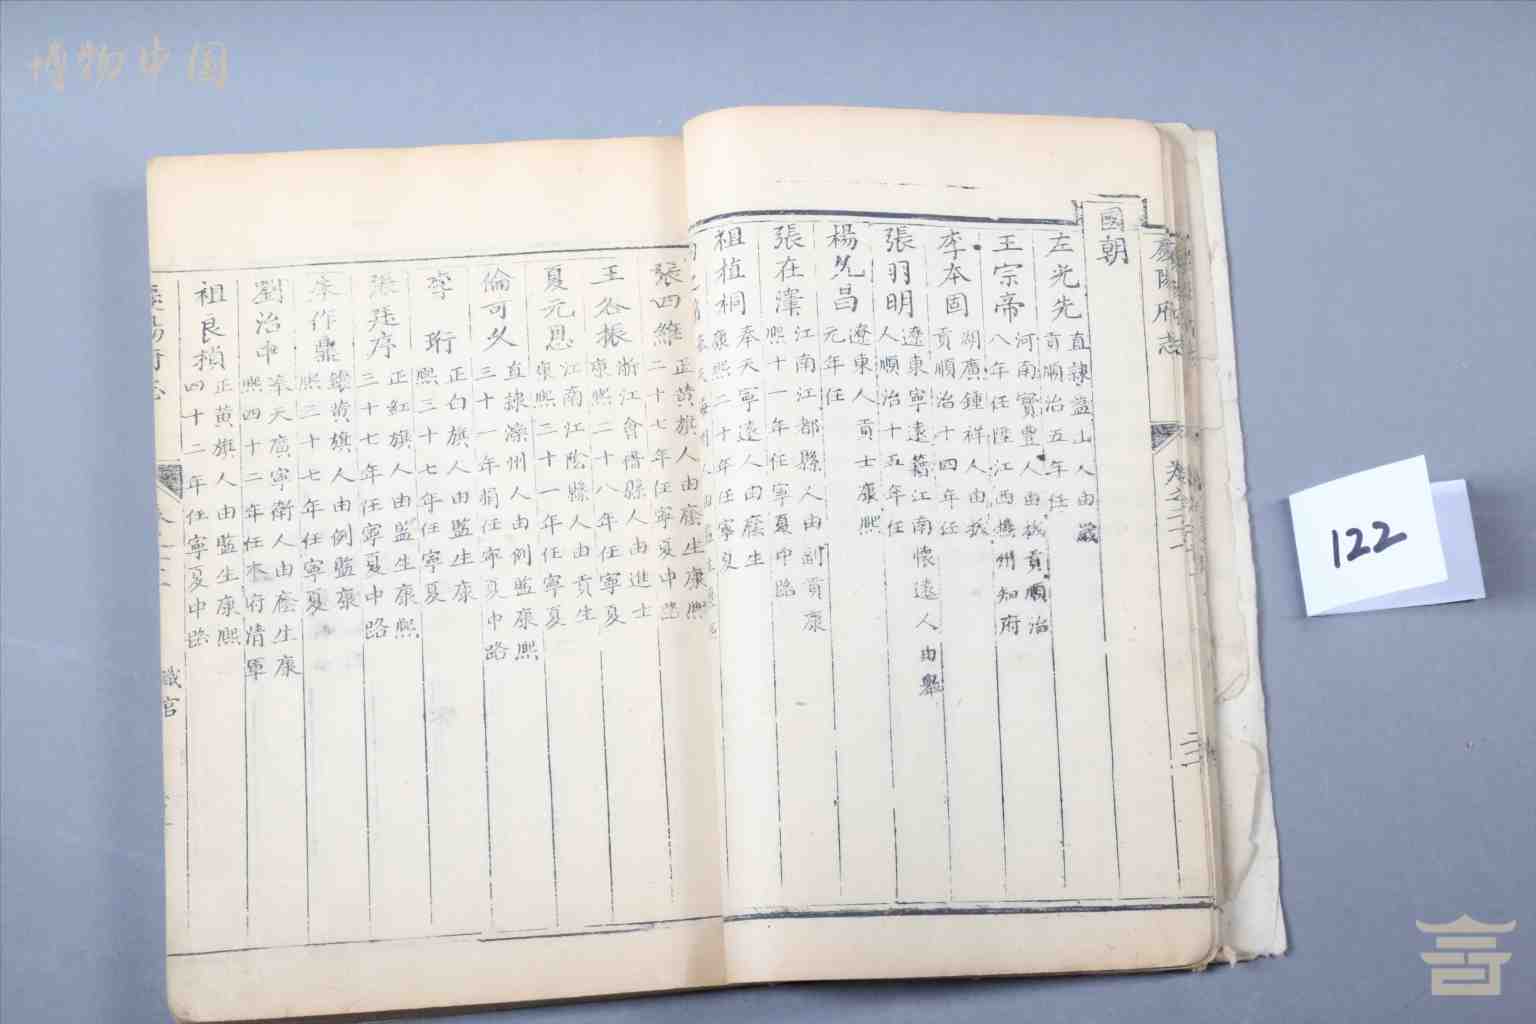 博物中国
慶陽府志
卷之二十
國朝
左光先 直隸盐山人由歲貢順治五年任
王宗帝 河南寳豊人由拔貢順治八年任陞江西撫州知府
李本固 湖廣鍾祥人由拔貢順治十四年任
張羽明 遼東寧遠籍江南懷遠人由舉人順治十五年任
楊先昌 遼東人貢士康熙元年任
張在澤 江南江都縣人由副貢康熙十一年任寧夏中路
祖植桐 奉天寧遠人由廕生康熙二十年任寧夏
張四維 正黄旗人由廕生康熙二十七年任寧夏中路
王振 浙江會偕縣人由進士康熙二十八年任寧夏
夏元恩 江南江陰縣人由貢生康熙三十一年任寧夏
倫可久 直隸灤州人由例監康熙三十一年捐任寧夏中路
李珩 正白旗人由監生康熙三十七年任寧夏
張廷序 正紅旗人由監生康熙三十七年任寧夏中路
李作鼎 鑲黄旗人由例監康熙三十七年任寧夏
劉治中 奉天廣寧衛人由廕生康熙四十二年任本府清軍
祖良楨 正黄旗人由監生康熙四十二年任寧夏中路
職官
122